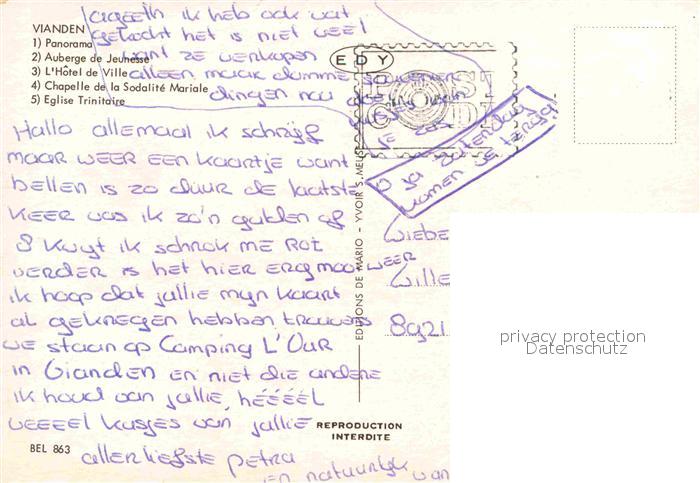 VIANDEN
1) Panorama
2) Auberge de Jeunesse
3) L'Hôtel de Ville
4) Chapelle de la Sodalité Mariale
5) Eglise Trinitaire
ik heb ook wat
gekocht het is niet veel
want ze verkopen
alleen maar domme souvenir
dingen nou doei
kusjes van
je zus
EDY
O ja zaterdag
komen we terug
Hallo allemaal ik schrijf
maar WEER EEN kaartje want
bellen is zo duur de laatste
KEER was ik zo'n gulden of
8 kwijt ik schrok me rot
verder is het hier erg mooi weer
ik hoop dat jullie mijn kaart
al gekregen hebben trouwens
we staan op Camping L'Our
in Vianden en niet die andere
ik houd van jullie, héééél
veeeel kusjes van jullie
allerliefste petra
en natuurlijk van
EDITIONS DE MARIO - YVOIR S. MEUSE
Wiebe
Wille
8921
privacy protection
Datenschutz
REPRODUCTION
INTERDITE
BEL 863